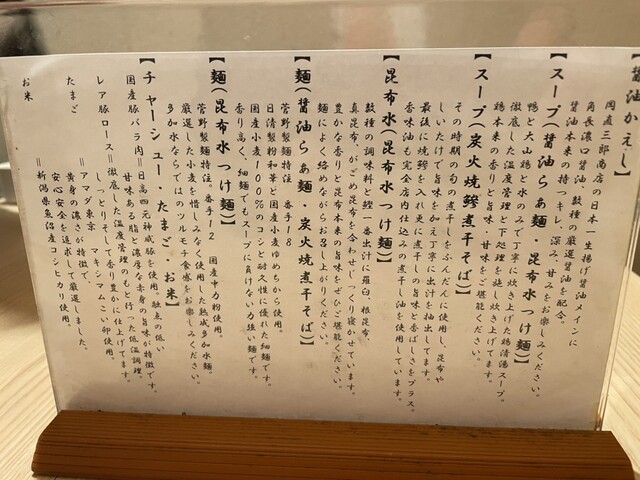 【醤油かえし】
岡直三郎商店の日本一生揚げ醤油メインに
角長濃口醤油、数種の厳選醤油を配合。
醤油本来の持つキレ、深み、甘みをお楽しみください。
【スープ(醤油らぁ麺・昆布水つけ麺)】
鴨と大山鶏と水のみで丁寧に炊き上げた鶏清湯スープ。
徹底した温度管理と下処理を施し炊き上げてます。
鶏本来の香りと旨味・甘味をご堪能ください。
【スープ(炭火焼鯵煮干そば)】
その時期の旬の煮干しをふんだんに使用し、昆布や
しいたけで旨味を加え丁寧に出汁を抽出してます。
最後に焼鯵を入れ更に煮干しの旨味と香ばしさをプラス。
香味油も完全店内仕込みの煮干し油を使用しています。
【昆布水(昆布水つけ麺)】
数種の調味料と鰹一番出汁に羅臼、根昆布、
真昆布、がごめ昆布を合わせじっくり寝かせています。
豊かな香りと昆布本来の旨味をぜひご堪能ください。
麺によく絡めながらお召し上がりください。
【麺(醤油らぁ麺・炭火焼煮干そば)】
菅野製麺特注 番手18
日清製粉和華と国産小麦ゆめちから使用。
国産小麦100%のコシと耐久性に優れた細麺です。
香り高く、細麺でもスープに負けない力強い麺です。
【麺(昆布水つけ麺)】
菅野製麺特注 番手12 国産中力粉使用。
厳選した小麦を惜しみなく使用した熟成多加水麺。
多加水ならではのツルモチ食感をお楽しみください。
【チャーシュー・たまご・お米】
国産豚バラ肉=日高四元神威豚を使用。融点の低い
甘味ある脂と濃厚な赤身の旨味が特徴です。
レア豚ロース=徹底した温度管理のもと行った低温調理。
しっとりそして香り豊かに仕上げてます。
たまご =アマダ東京 マキシマムこい卵使用。
黄身の濃さが特徴で、
安心安全を追求して厳選しました。
お米 =新潟県魚沼産コシヒカリ使用。